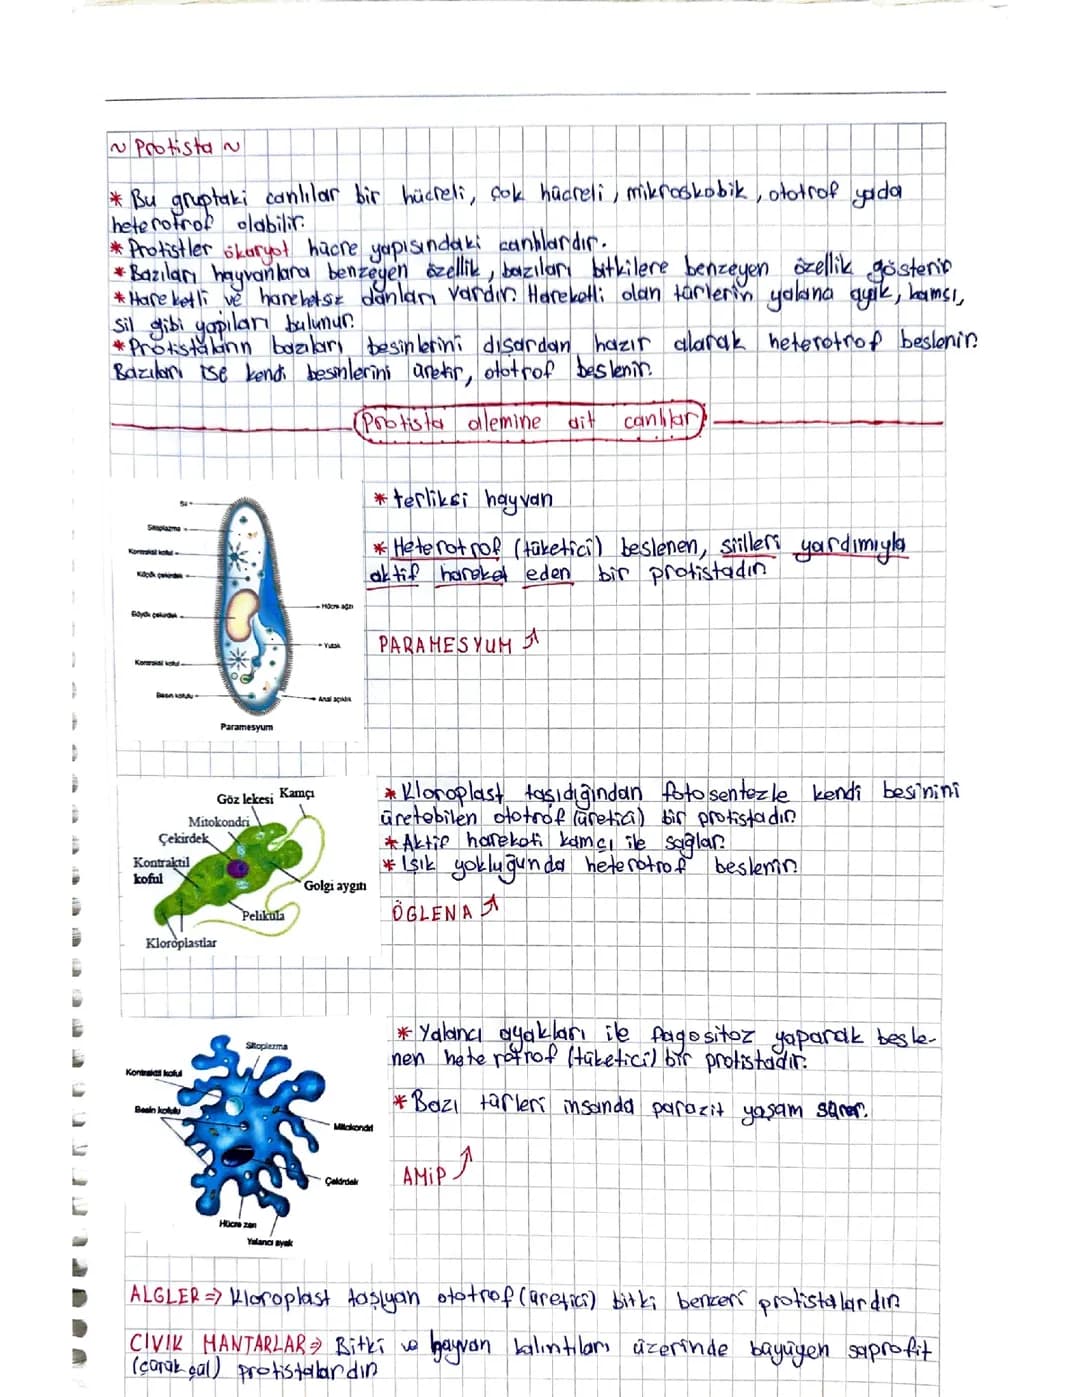 ~ Protista ~
* Bu gruptaki canlılar bir hücreli, çok hücreli, mikroskobik, ototrof yada
heterotrof olabilir.
* Protistler ökaryot hücre yapısındaki canlılardır.
* Bazıları hayvanlara benzeyen özellik, bazıları bitkilere benzeyen özellik gösterir
* Hareketli ve hareketsiz olanları vardır. Hareketli olan türlerin yalancı ayak, kamçı,
sil gibi yapıları bulunur.
* Protistaların bazıları besinlerini dışardan hazır alarak heterotrof beslenir.
Bazıları ise kendi besinlerini üretir, ototrof beslenir.
Protista alemine ait canlılar
* terliksi hayvan
* Heterotrof (tüketici) beslenen, siilleri yardımıyla
aktif hareket eden bir protistadır.
PARAMESYUM
Sil
Sitoplazma
Kontraktil koful
Küçük çekirdek
Büyük çekirdek
Kontraktil koful
Besin kofulu
Hücre ağzı
Yutak
Anal açıklık
Paramesyum
Göz lekesi Kamçı
Mitokondri
Çekirdek
Kontraktil
koful
Golgi aygıtı
Pelikula
Kloroplastlar
* Kloroplast taşıdığından fotosentezle kendi besinini
üretebilen ototrof (üretici) bir protistadır.
* Aktif hareketi kamçı ile sağlar.
* Işık yokluğunda heterotrof beslenir.
ÖGLENA
Sitoplazma
Kontraktil koful
Besin kofulu
Mitokondri
Çekirdek
Hücre zarı
Yalancı ayak
* Yalancı ayakları ile fagositoz yaparak besle-
nen heterotrof (tüketici) bir protistadır.
* Bazı türleri insanda parazit yaşam sürer.
AMİP
ALGLER => Kloroplast taşıyan ototrof (üretici) bitki benzeri protistalardır.
CIVIK MANTARLAR => Bitki ve hayvan kalıntıları üzerinde büyüyen saprofit
(çürükçül) protistalardır.